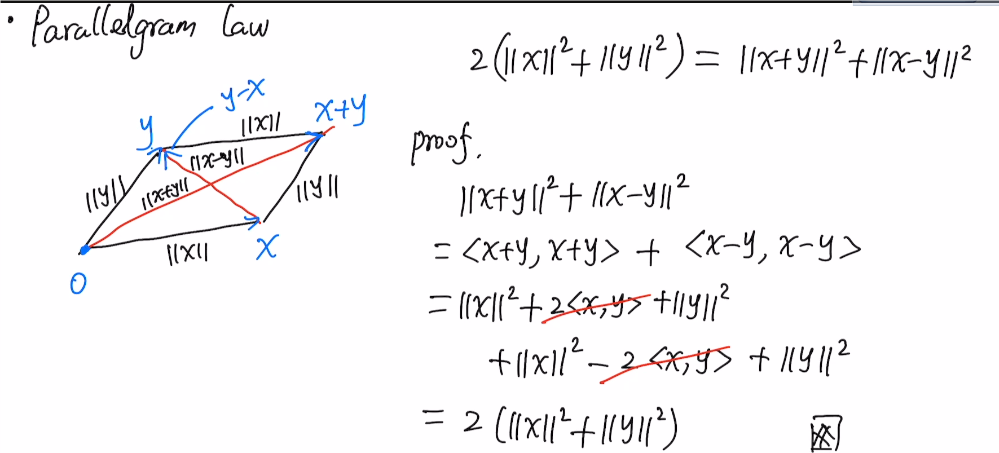 • Parallelgram Law
2(||x||²+||y||²) = ||x+y||²+||x-y||²
y-x
y
||x||
x+y
||x-y||
||y||
||x+y||
||y||
||x||
x
0
proof.
||x+y||²+||x-y||²
= <x+y, x+y> + <x-y, x-y>
= ||x||²+2<x,y>+||y||²
+||x||²-2<x,y>+||y||²
= 2(||x||²+||y||²)